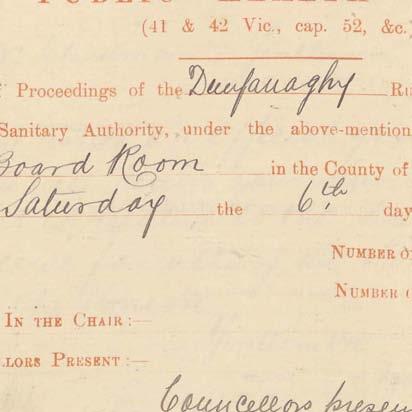 (41 & 42 Vic., cap. 52, &c.
Proceedings of the Dunfanaghy Ru
Sanitary Authority, under the above-mention
Board Room in the County of
Saturday the 6th day
NUMBER O
NUMBER
IN THE CHAIR:—
LLORS PRESENT:—
Councellors presen